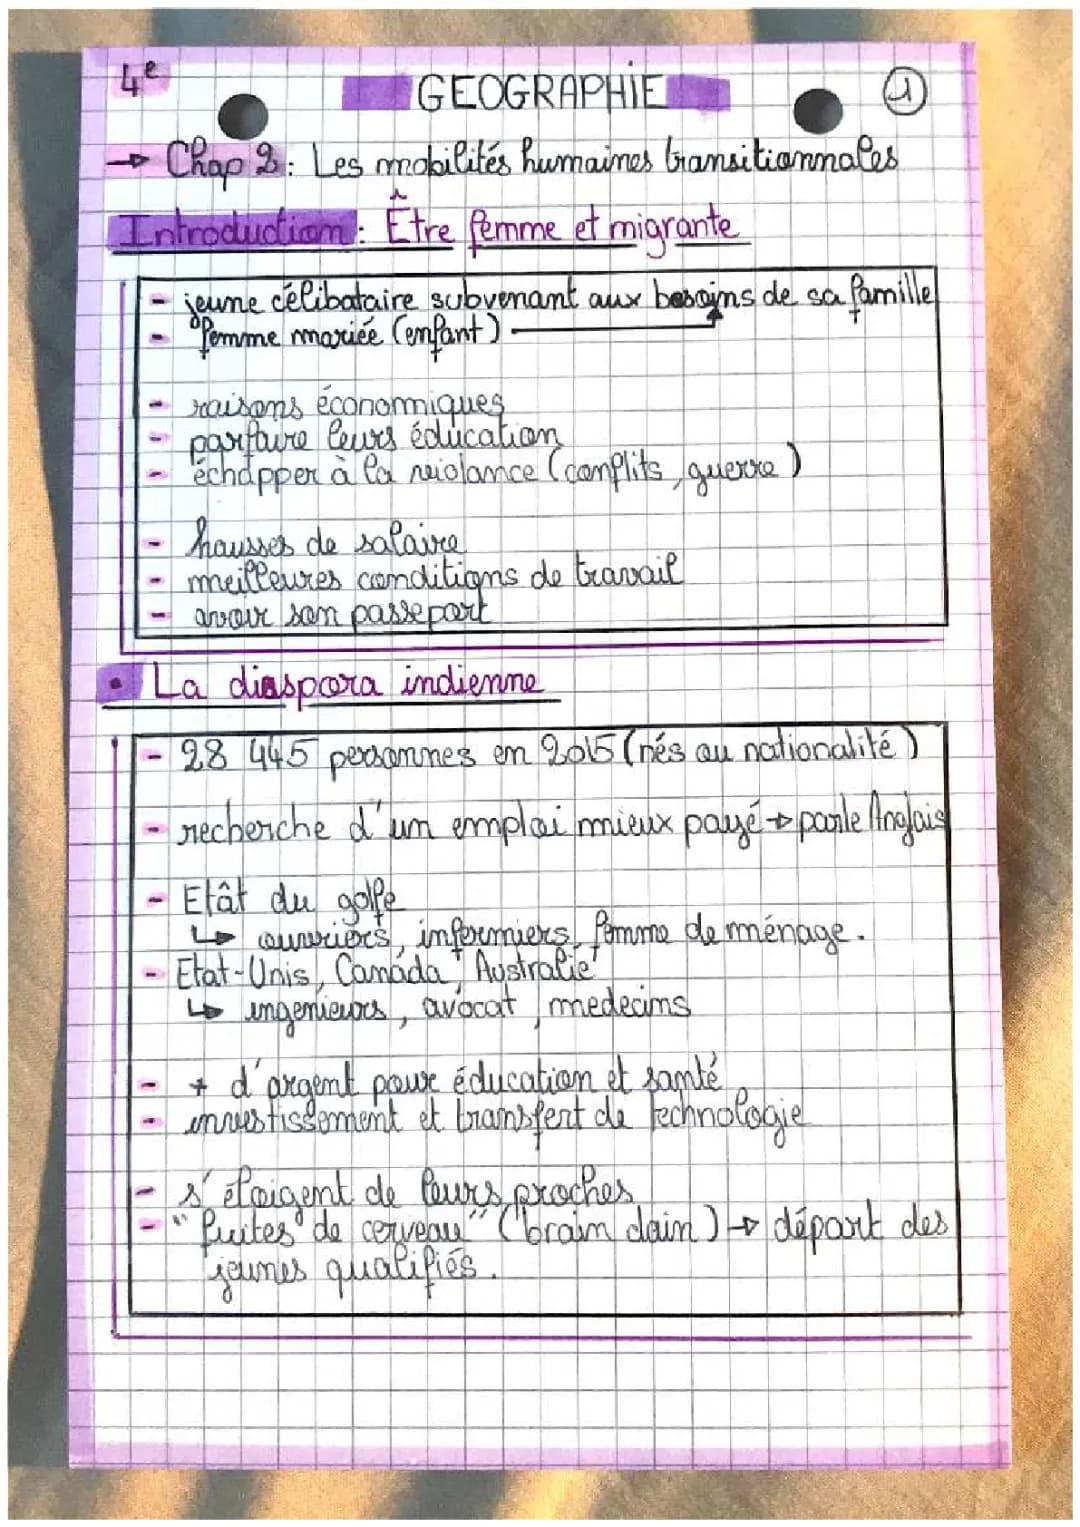 4e
GEOGRAPHIE
1
→ Chap 2 : Les mobilités humaines transitionnales
Introduction : Être femme et migrante
- jeune célibataire subvenant aux besoins de sa famille
- femme mariée (enfant)
- raisons économiques
- parfaire leurs éducation
- échapper à la violance (conflits, guerre)
- hausses de salaire
- meilleures conditions de travail
- avoir son passeport
• La diaspora indienne
- 28 445 personnes en 2015 (nés ou nationalité)
- recherche d'un emploi mieux payé → parle Anglais
- Etât du golfe
↳ ouvriers, infermiers, femme de ménage.
- Etat-Unis, Canada, Australie
↳ ingenieurs, avocat, medecins
- + d'argent pour éducation et santé
- investissement et transfert de technologie
- s'éloigent de leurs proches
- "fuites de cerveau" (brain dain) → départ des
jeunes qualifiés.